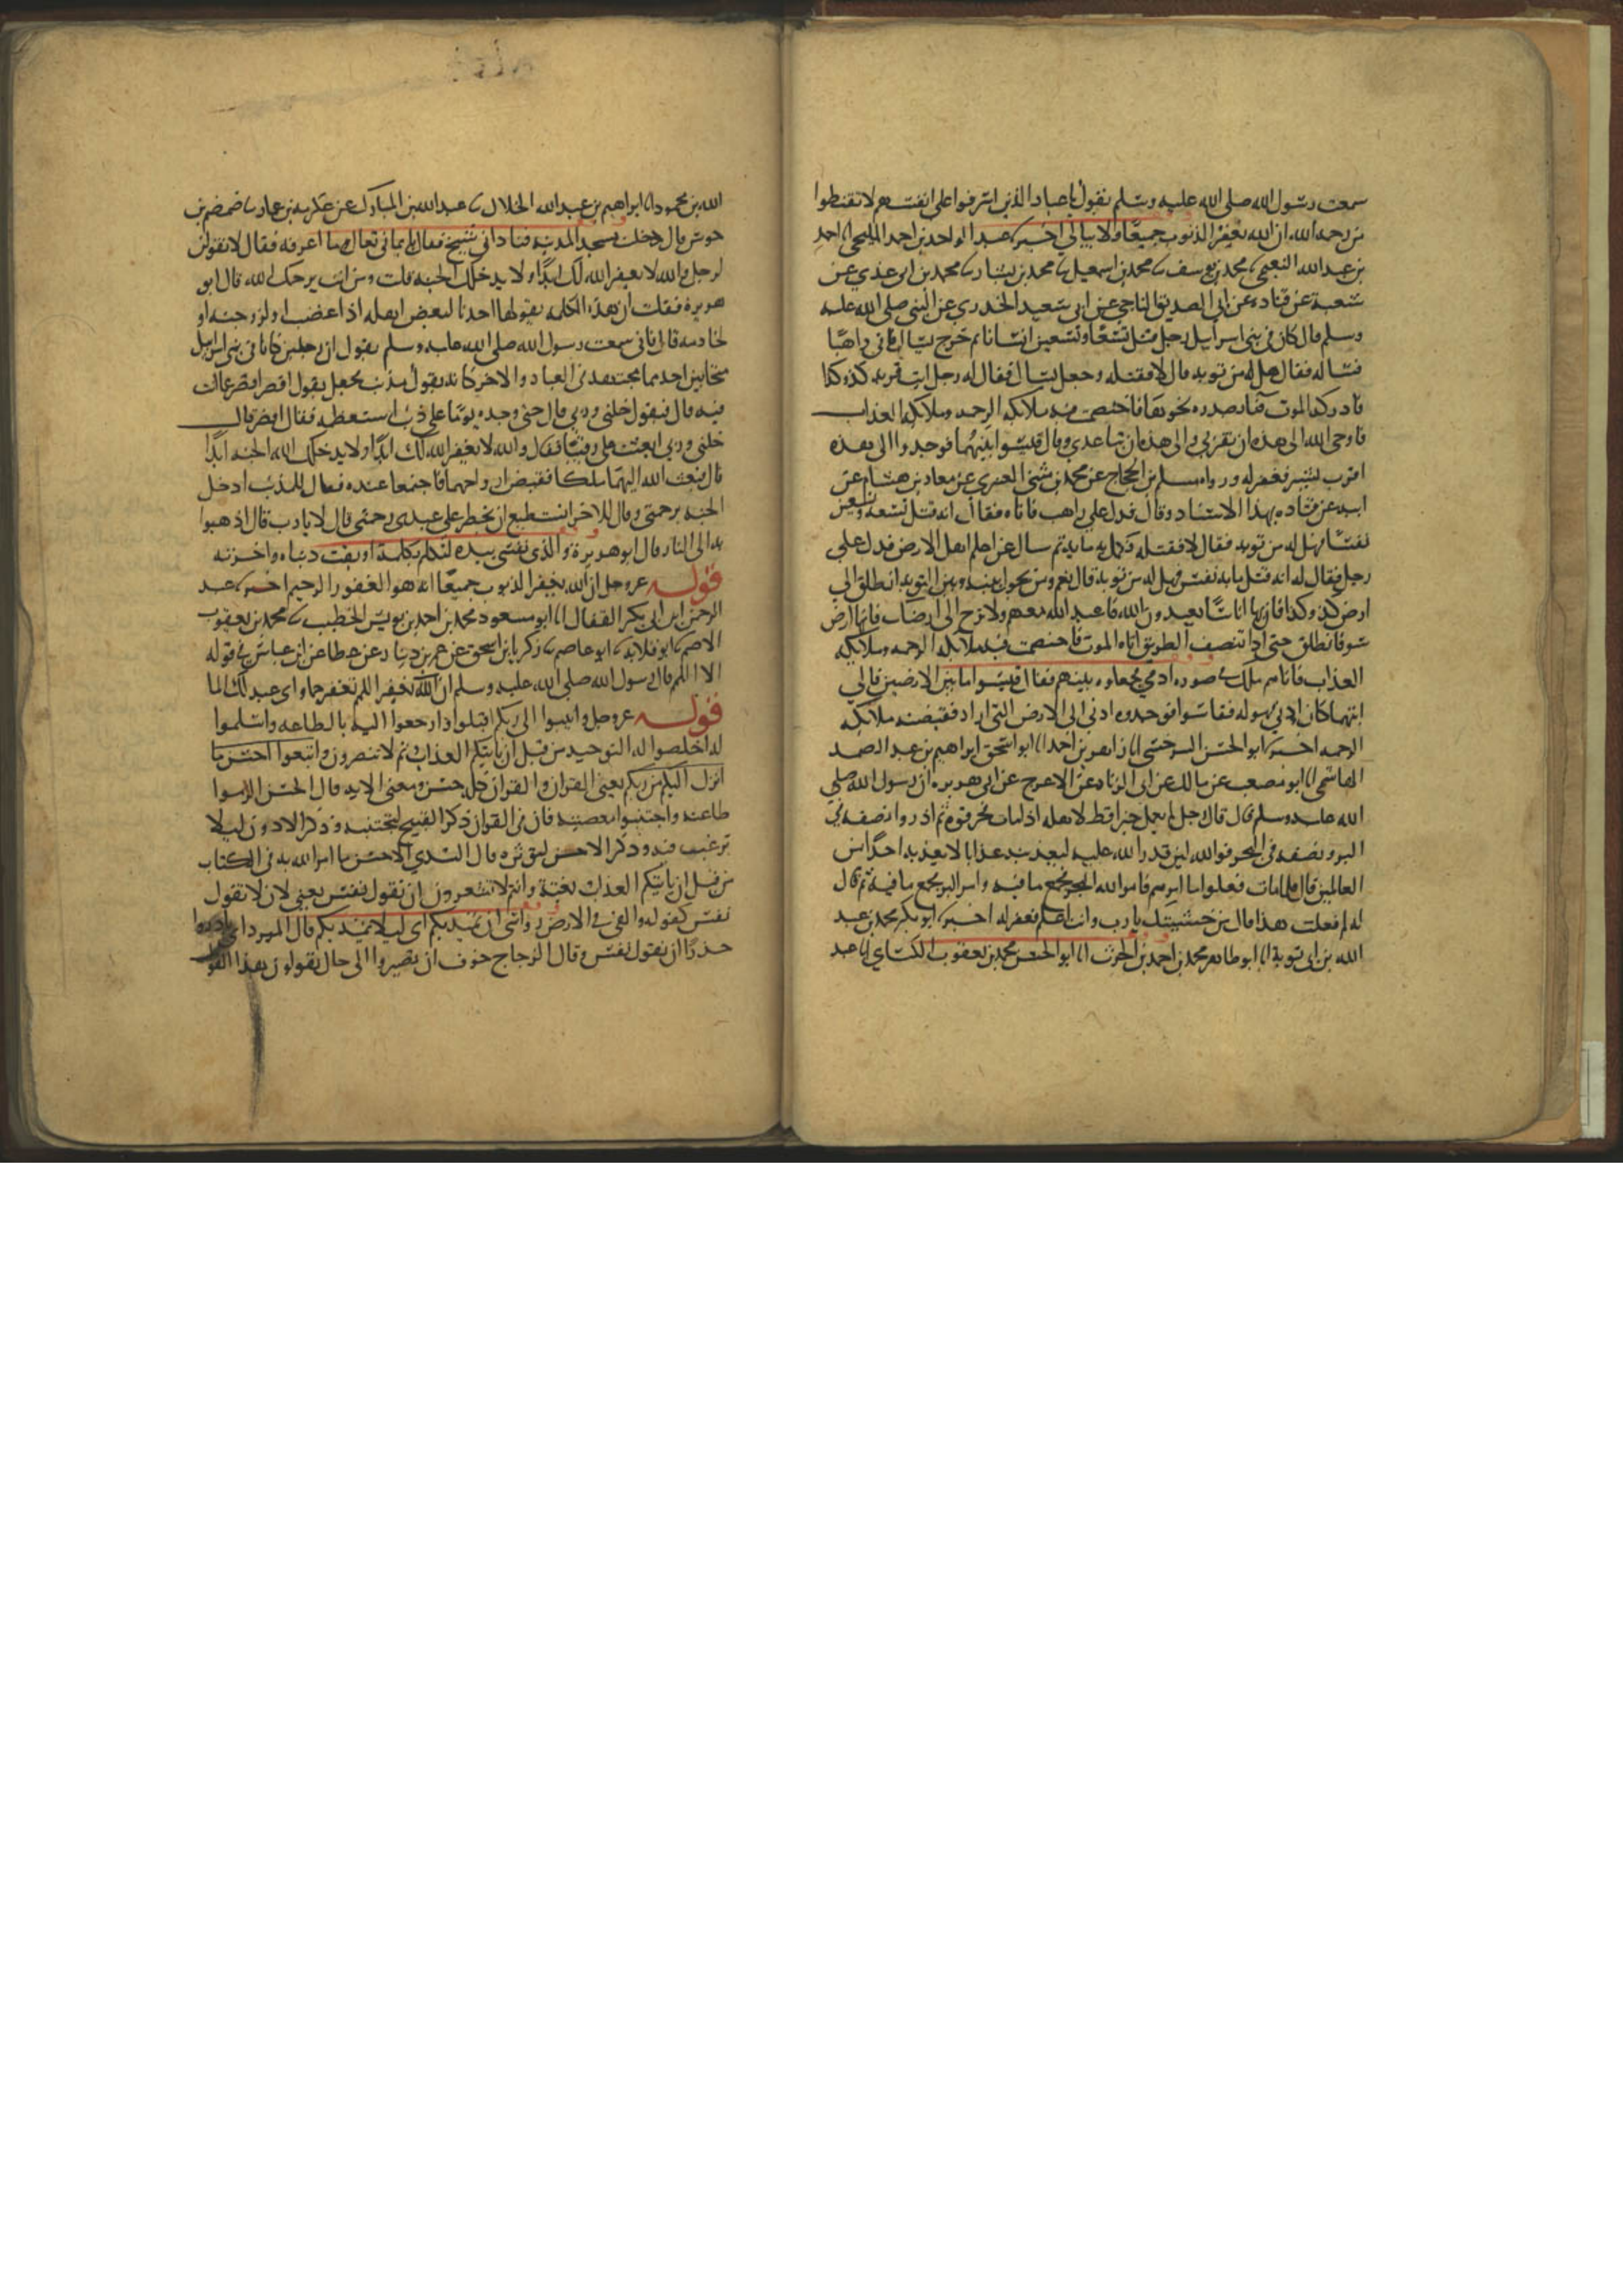 سمعت رسول الله صلى الله عليه وسلم يقول يا عبادى الذين اسرفوا على انفسهم لا تقنطوا
من رحمه الله ان الله يغفر الذنوب جميعا ولا يبالي اخبرنا عبد الواحد بن احمد المليحى انا احمد
بن عبد الله النعيمى نا محمد بن يوسف نا محمد بن اسمعيل نا محمد بن بشار نا محمد بن ابي عدي عن
شعبة عن قتاده عن ابي الصديق الناجي عن ابي سعيد الخدري عن النبي صلى الله عليه
وسلم قال كان في بني اسرايل رجل قتل تسعا وتسعين انسانا ثم خرج يسال فاتى راهبا
فساله فقال هل له من توبه قال لا فقتله وجعل يسال فقال له رجل ايت قريه كذا وكذا
فادركه الموت فناء بصدره نحوها فاختصمت فيه ملايكه الرحمه وملايكه العذاب
فاوحى الله الى هذه ان تقربي والى هذه ان تباعدي وقال قيسوا ما بينهما فوجدوا الى هذه
اقرب بشبر فغفر له ورواه مسلم بن الحجاج عن محمد بن مثنى العنبري عن معاذ بن هشام عن
ابيه عن قتاده بهذا الاسناد وقال فدل على راهب فاتاه فقال انه قتل تسعه وتسعين
نفسا فهل له من توبه فقال لا فقتله فكمل به مايه ثم سال عن اعلم اهل الارض فدل على
رجل فقال له انه قتل مايه نفس فهل له من توبة قال نعم ومن يحول بينه وبين التوبه انطلق الى
ارض كذا وكذا فان بها اناسا يعبدون الله فاعبد الله معهم ولا ترجع الى ارضك فانها ارض
سو فانطلق حتى اذا نصف الطريق اتاه الموت فاختصمت فيه ملايكه الرحمه وملايكه
العذاب فاتاهم ملك في صوره ادمي فجعلوه بينهم فقال قيسوا ما بين الارضين فالى
ايتهما كان ادنى فهو له فقاسوا فوجدوه ادنى الى الارض التي اراد فقبضته ملايكه
الرحمه اخبرنا ابو الحسن السرخسى انا زاهر بن احمد انا ابو اسحق ابراهيم بن عبد الصمد
الهاشمي انا ابو مصعب عن مالك عن ابي الزناد عن الاعرج عن ابي هريره ان رسول الله صلى
الله عليه وسلم قال قال رجل لم يعمل خيرا قط لاهله اذا مات فحرقوه ثم اذروا نصفه في
البر ونصفه في البحر فوالله لين قدر الله عليه ليعذبنه عذابا لا يعذبه احدا من
العالمين قال فلما مات فعلوا ما امرهم فامر الله البحر فجمع ما فيه وامر البر فجمع ما فيه ثم قال
له لم فعلت هذا قال من خشيتك يا رب وانت اعلم فغفر له اخبرنا ابو بكر محمد بن عبد
الله بن ابي توبة انا ابو طاهر محمد بن احمد بن الحرث انا ابو الحسن محمد بن يعقوب الكساي انا عبد
الله بن محمود انا ابراهيم بن عبد الله الخلال نا عبد الله بن المبارك عن عكرمه بن عمار نا ضمضم بن
جوس قال دخلت مسجد المدينه فناداني شيخ فقال يا يماني تعال وما اعرفه فقال لا تقولن
لرجل والله لا يغفر الله لك ابدا ولا يدخلك الجنه قلت ومن انت يرحمك الله قال ابو
هريرة فقلت ان هذه الكلمه يقولها احدنا لبعض اهله اذا غضب او لزوجته او
لخادمه قال فاني سمعت رسول الله صلى الله عليه وسلم يقول ان رجلين كانا في بني اسرايل
متحابين احدهما مجتهد في العباده والاخر كانه يقول مذنب فجعل يقول اقصر اقصر عما انت
فيه قال فيقول خلني وربي قال حتى وجده يوما على ذنب استعظمه فقال اقصر قال
خلني وربي ابعثت علي رقيبا فقال والله لا يغفر الله لك ابدا ولا يدخلك الله الجنه ابدا
قال فبعث الله اليهما ملكا فقبض ارواحهما فاجتمعا عنده فقال للمذنب ادخل
الجنه برحمتى وقال للاخر اتستطيع ان تحظر على عبدى رحمتى قال لا يا رب قال اذهبوا
به الى النار قال ابو هريرة والذى نفسي بيده لتكلم بكلمة اوبقت دنياه واخرته
قوله عز وجل ان الله يغفر الذنوب جميعا انه هو الغفور الرحيم اخبرنا عبد
الرحمن ابن ابي بكر القفال انا ابو مسعود محمد بن احمد بن يونس الخطيب نا محمد بن يعقوب
الاصم نا ابو قلابه نا ابو عاصم نا زكريا بن اسحق عن عمرو بن دينار عن عطا عن ابن عباس في قوله
الا اللمم قال رسول الله صلى الله عليه وسلم ان تغفر اللهم تغفر جما واى عبد لك لا الما
قوله عز وجل وانيبوا الى ربكم اقبلوا وارجعوا اليه بالطاعه واسلموا
له اخلصوا له التوحيد من قبل ان ياتيكم العذاب ثم لا تنصرون واتبعوا احسن ما
انزل اليكم من ربكم يعني القران والقران كله حسن ومعنى الايه قال الحسن الزموا
طاعته واجتنبوا معصيته فان في القران ذكر القبيح لتجتنبه وذكر الادون ليلا
ترغب فيه وذكر الاحسن لتوثره قال السدي الاحسن ما امر الله به في الكتاب
من قبل ان ياتيكم العذاب بغتة وانتم لا تشعرون ان تقول نفس يعني لان لا تقول
نفس كقوله والقى في الارض رواسى ان تميد بكم اى ليلا تميد بكم قال المبرد اى بادروا
حذرا ان تقول نفس وقال الزجاج خوف ان تصيروا الى حال تقولون هذا القول